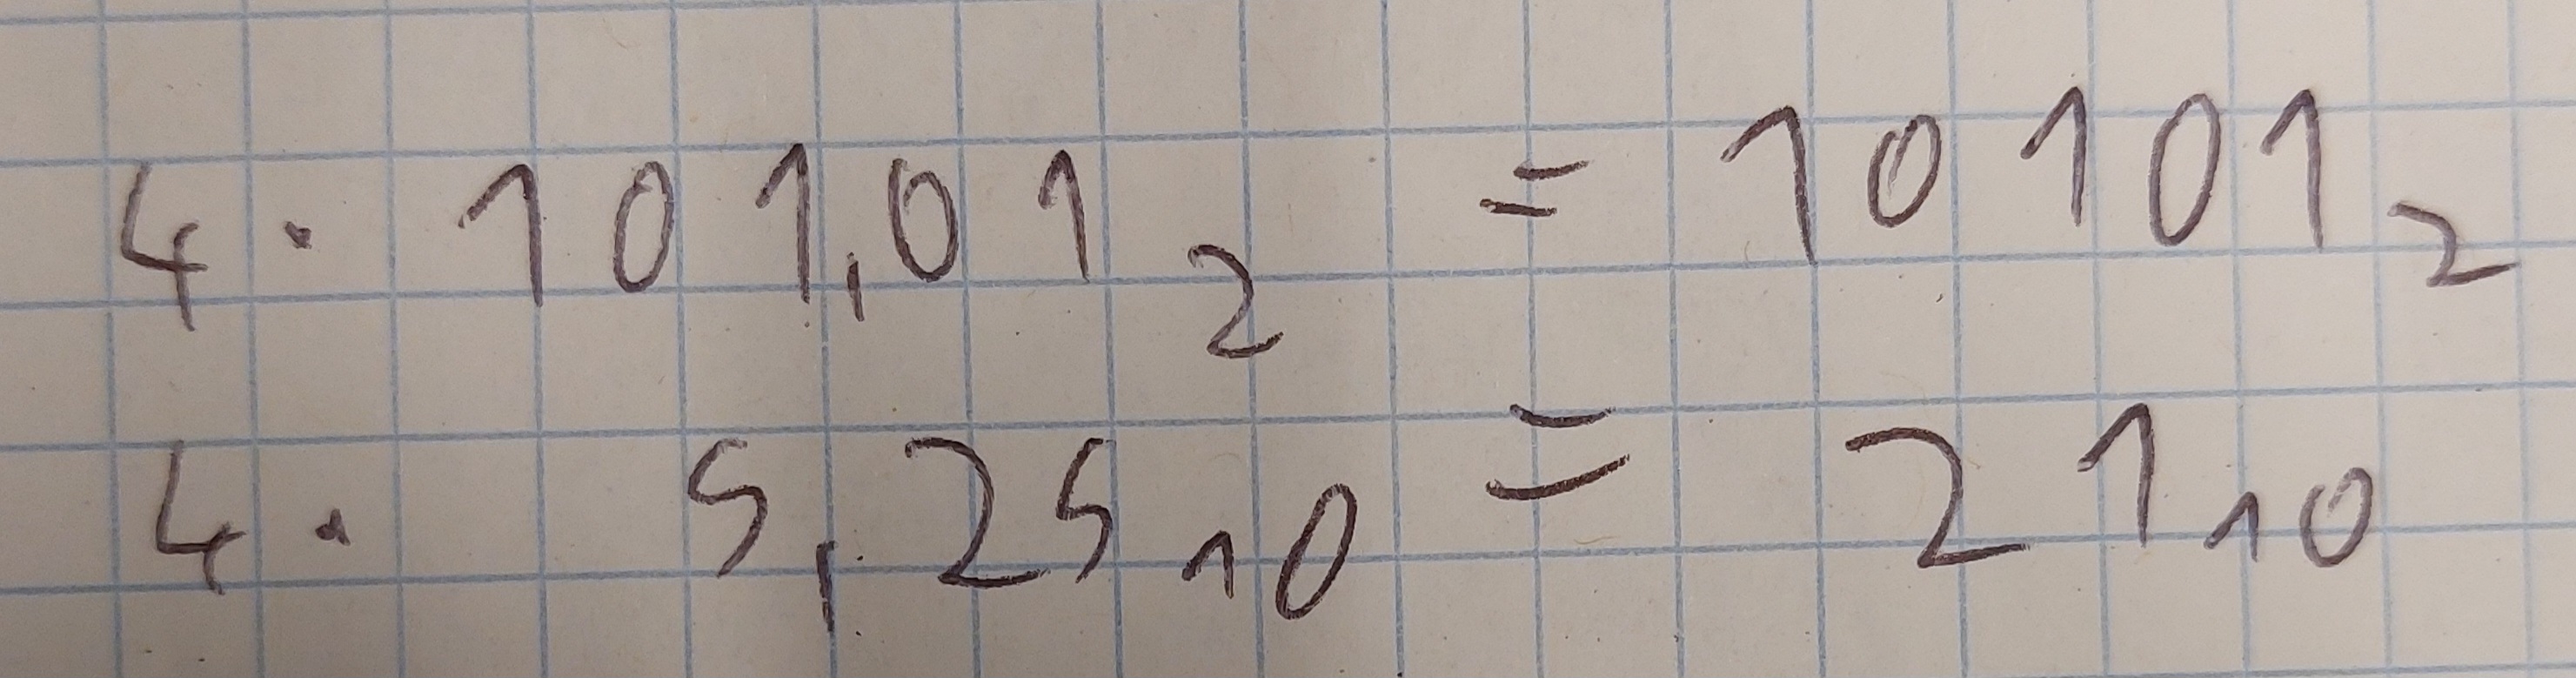 4 · 101,01₂ = 10101₂
4 · 5,25₁₀ = 21₁₀